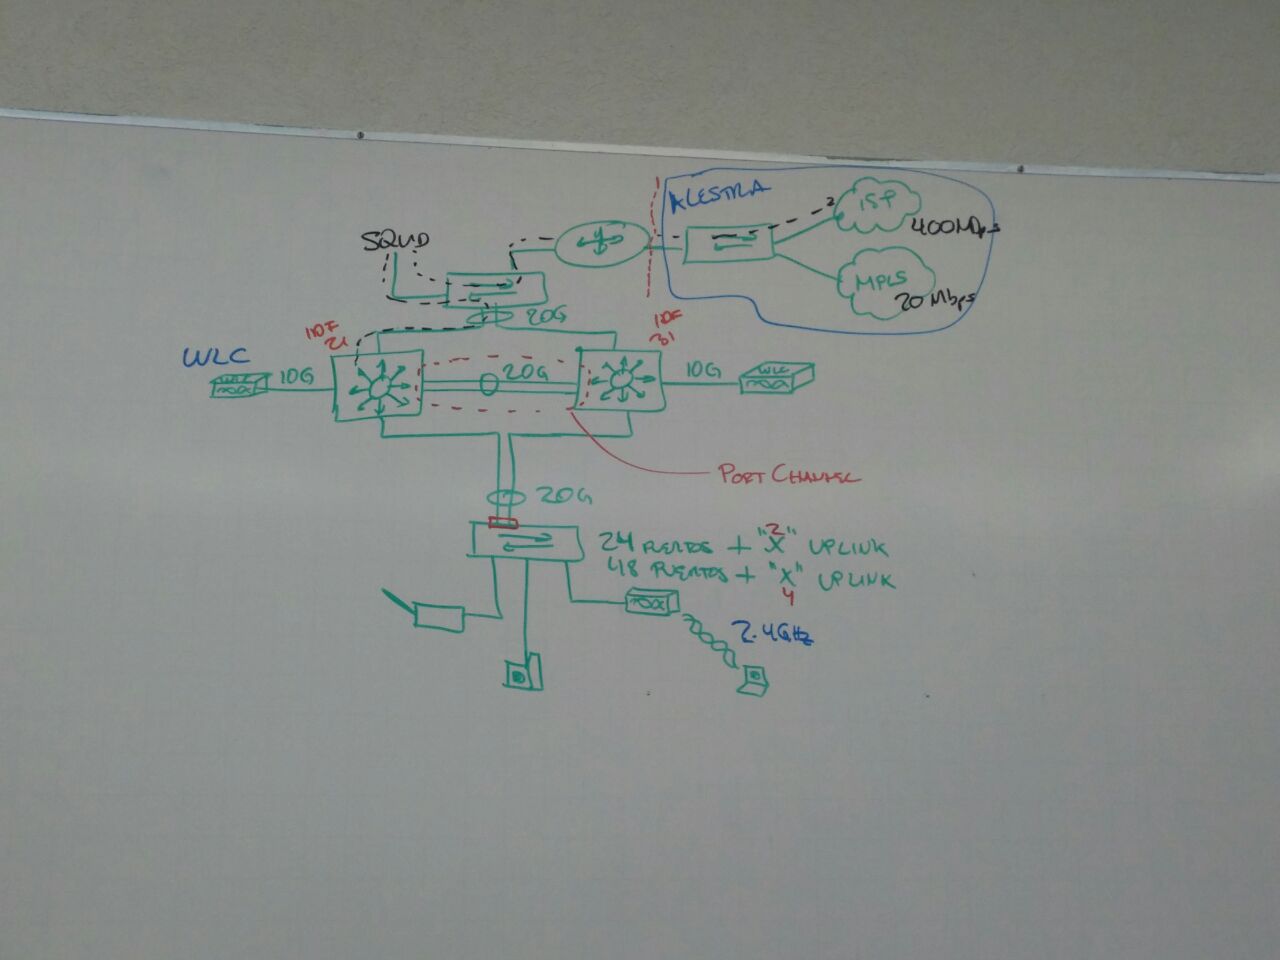 ALESTRA
ISP
400Mbps
SQUID
MPLS
20 Mbps
20G
IDF
21
IDF
31
WLC
WLC
10G
20G
10G
WLC
PORT CHANNEL
20G
24 PUERTOS + "X" UPLINK
2
48 PUERTOS + "X" UPLINK
4
2.4GHz